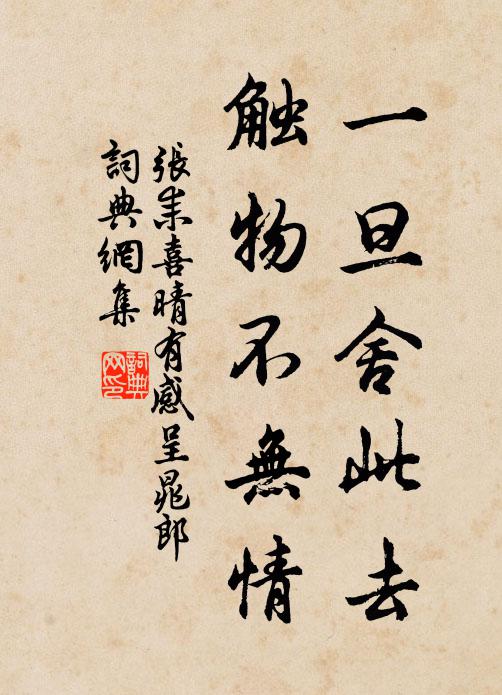 一旦舍此去
触物不無情
張耒喜晴有感呈晁郎
詞典網集
詞典
网印